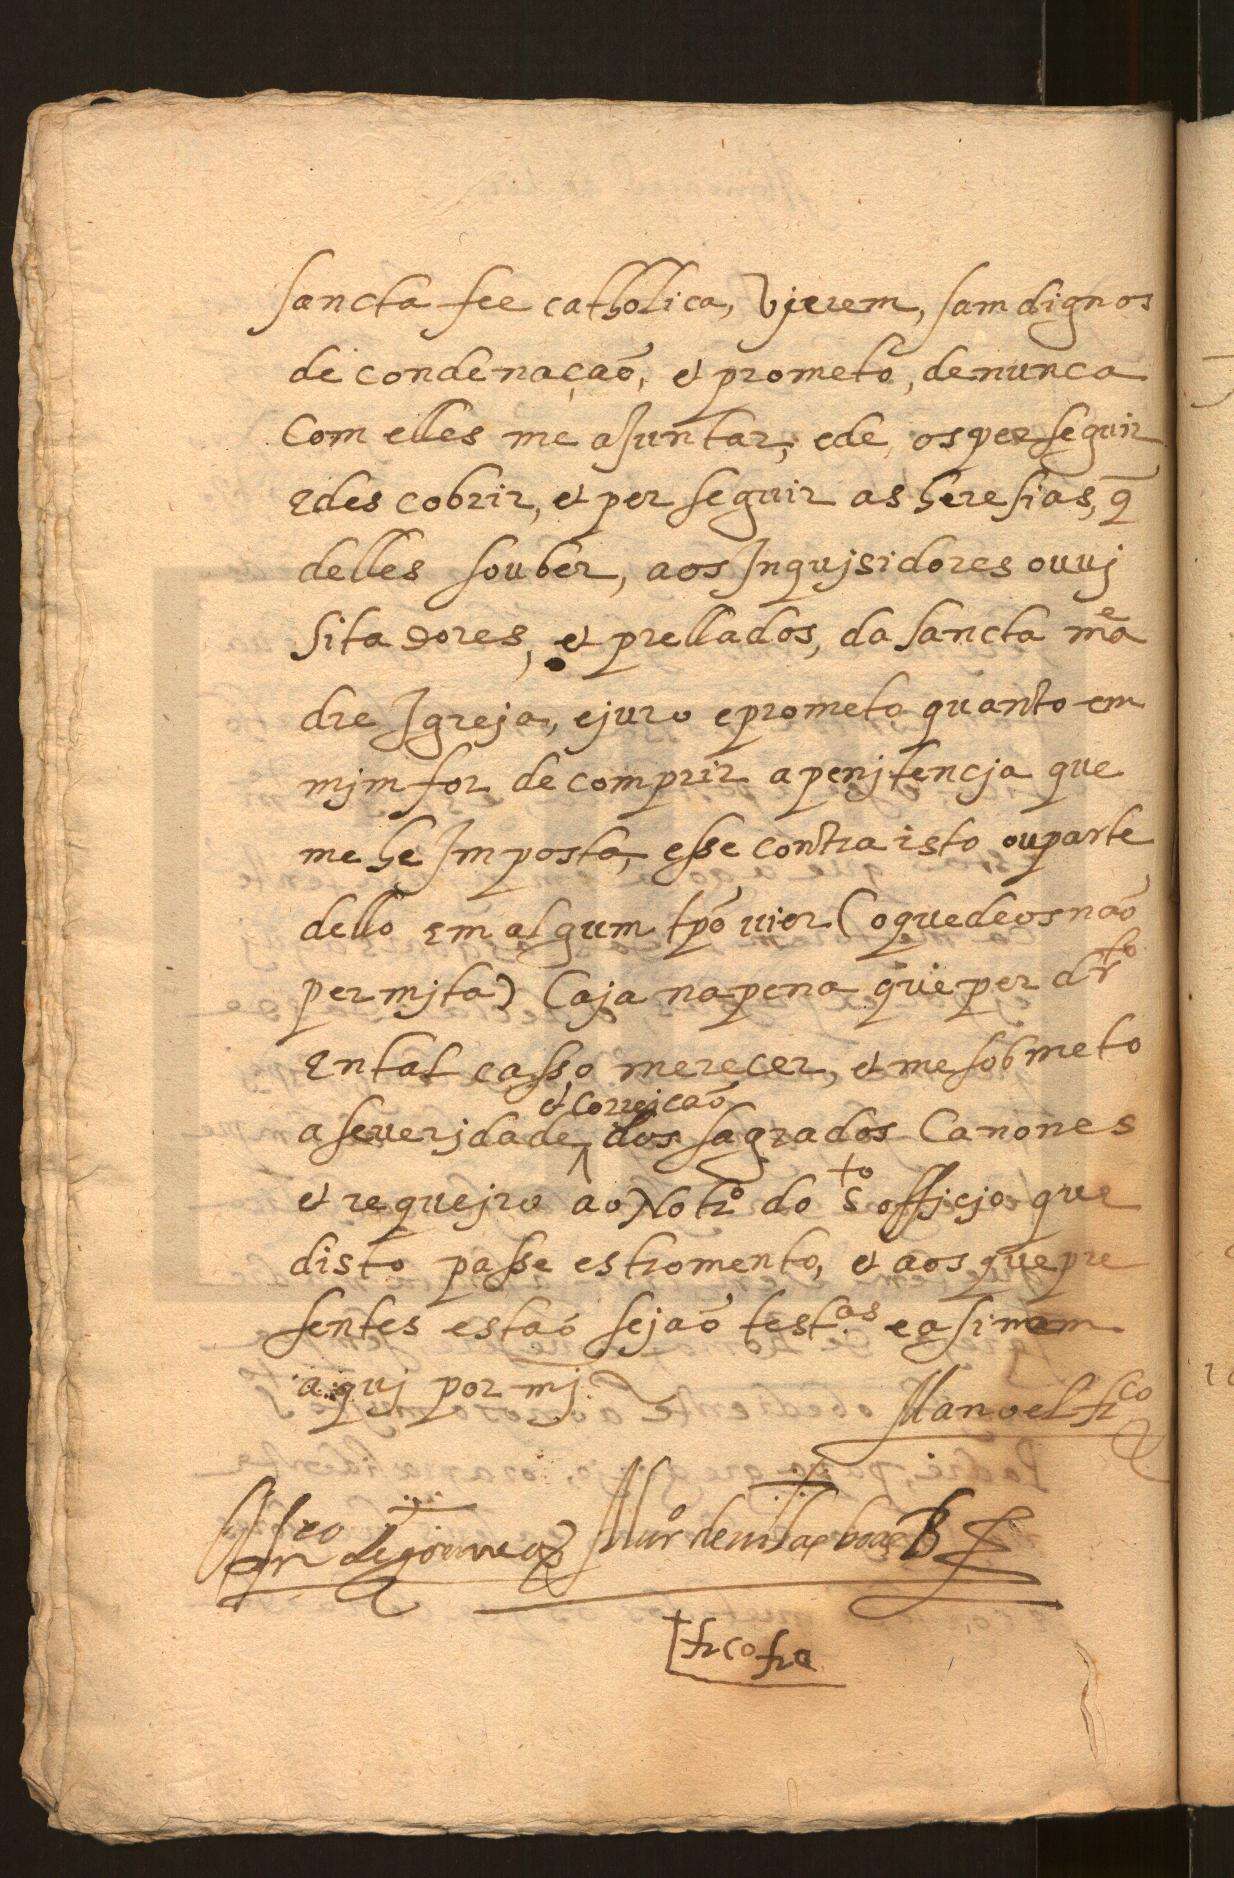 sancta fee catholica, vjerem, sam dignos
de condenação, et prometo, de nunca
com elles me aJuntar, e de, os perseguir
e descobrir, et perseguir as heresias, q̃
delles souber, aos Inqujsidores ou vj
sitadores, et prellados, da sancta me͂a
dre Igreja, e juro e prometo quanto em
mjm for de comprir a penjtencja que
me he Imposta, e sse contra isto ou parte
dello em algum tp̃o vier (o que deos não
permjta) Caja na pena que per drto
En tal casso merecer, et me sobmeto
a severjdade, et correjcaõ dos sagrados Canones
et requejro ao Notro do Sto officjo que
disto passe estromento, et aos que pre
sentes estaõ sejaõ testas e asinem
aquj por mj
Manoel frco
de gouvea Mnr de villas boas B
frco fra